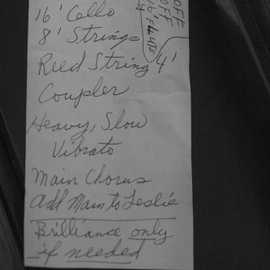 16' Cello
8' Strings
Reed String 4'
Coupler
Heavy, Slow
Vibrato
Main Chorus
Add Main to Leslie
Brilliance only
if needed
OFF